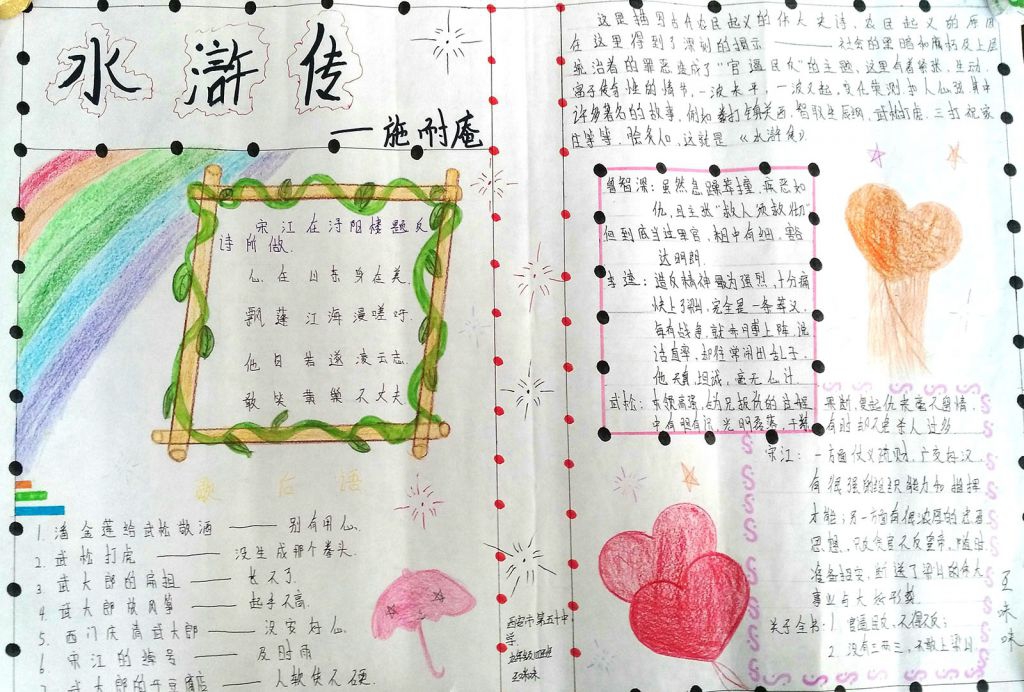 水浒传
——施耐庵
宋江在浔阳楼题反
诗所做.
心在山东身在吴.
飘蓬江海漫嗟吁.
他日若遂凌云志.
敢笑黄巢不丈夫.
歇后语
1. 潘金莲给武松敬酒 —— 别有用心.
2. 武松打虎 —— 没生成那个拳头.
3. 武大郎的扁担 —— 长不了.
4. 武大郎放风筝 —— 起手不高.
5. 西门庆请武大郎 —— 没安好心.
6. 宋江的绰号 —— 及时雨
7. 武大郎的豆腐店 —— 人软货不硬.
西安市第五十中
学
这是描写古代农民起义的伟大史诗,农民起义的原因
在这里得到了深刻的揭示 —— 社会的黑暗和腐朽及上层
统治者的罪恶造成了“官逼民反”的主题,这里有着紧张,生动,
富于传奇性的情节,一波未平,一波又起,变化莫测,扣人心弦其中
许多著名的故事,例如拳打镇关西,智取生辰纲,武松打虎,三打祝家
庄等等,脍炙人口,这就是《水浒传》
鲁智深:虽然急躁莽撞,疾恶如
仇,且主张“救人须救彻”
粗中有细,豁
达明朗.
李逵:造反精神最为强烈,十分痛
快上了梁山,完全是一条莽汉.
每有战争,就赤膊上阵,说
话直率,却往常闹出乱子.
他天真坦诚,毫无心计.
武松:本领高强,在为兄报仇的过程
中有胆有识,光明磊落,干练
果断,复起仇来毫不留情,
有时却不免杀人过多
宋江:一方面仗义疏财,广交好汉,
有很强的组织能力和指挥
才能;另一方面有很浓厚的忠君
思想,只反贪官不反皇帝,随时
准备招安,断送了梁山的伟大
事业与大好形势.
关于全书:1. 官逼民反,不得不反;
2. 没有三两三,不敢上梁山.
王味味